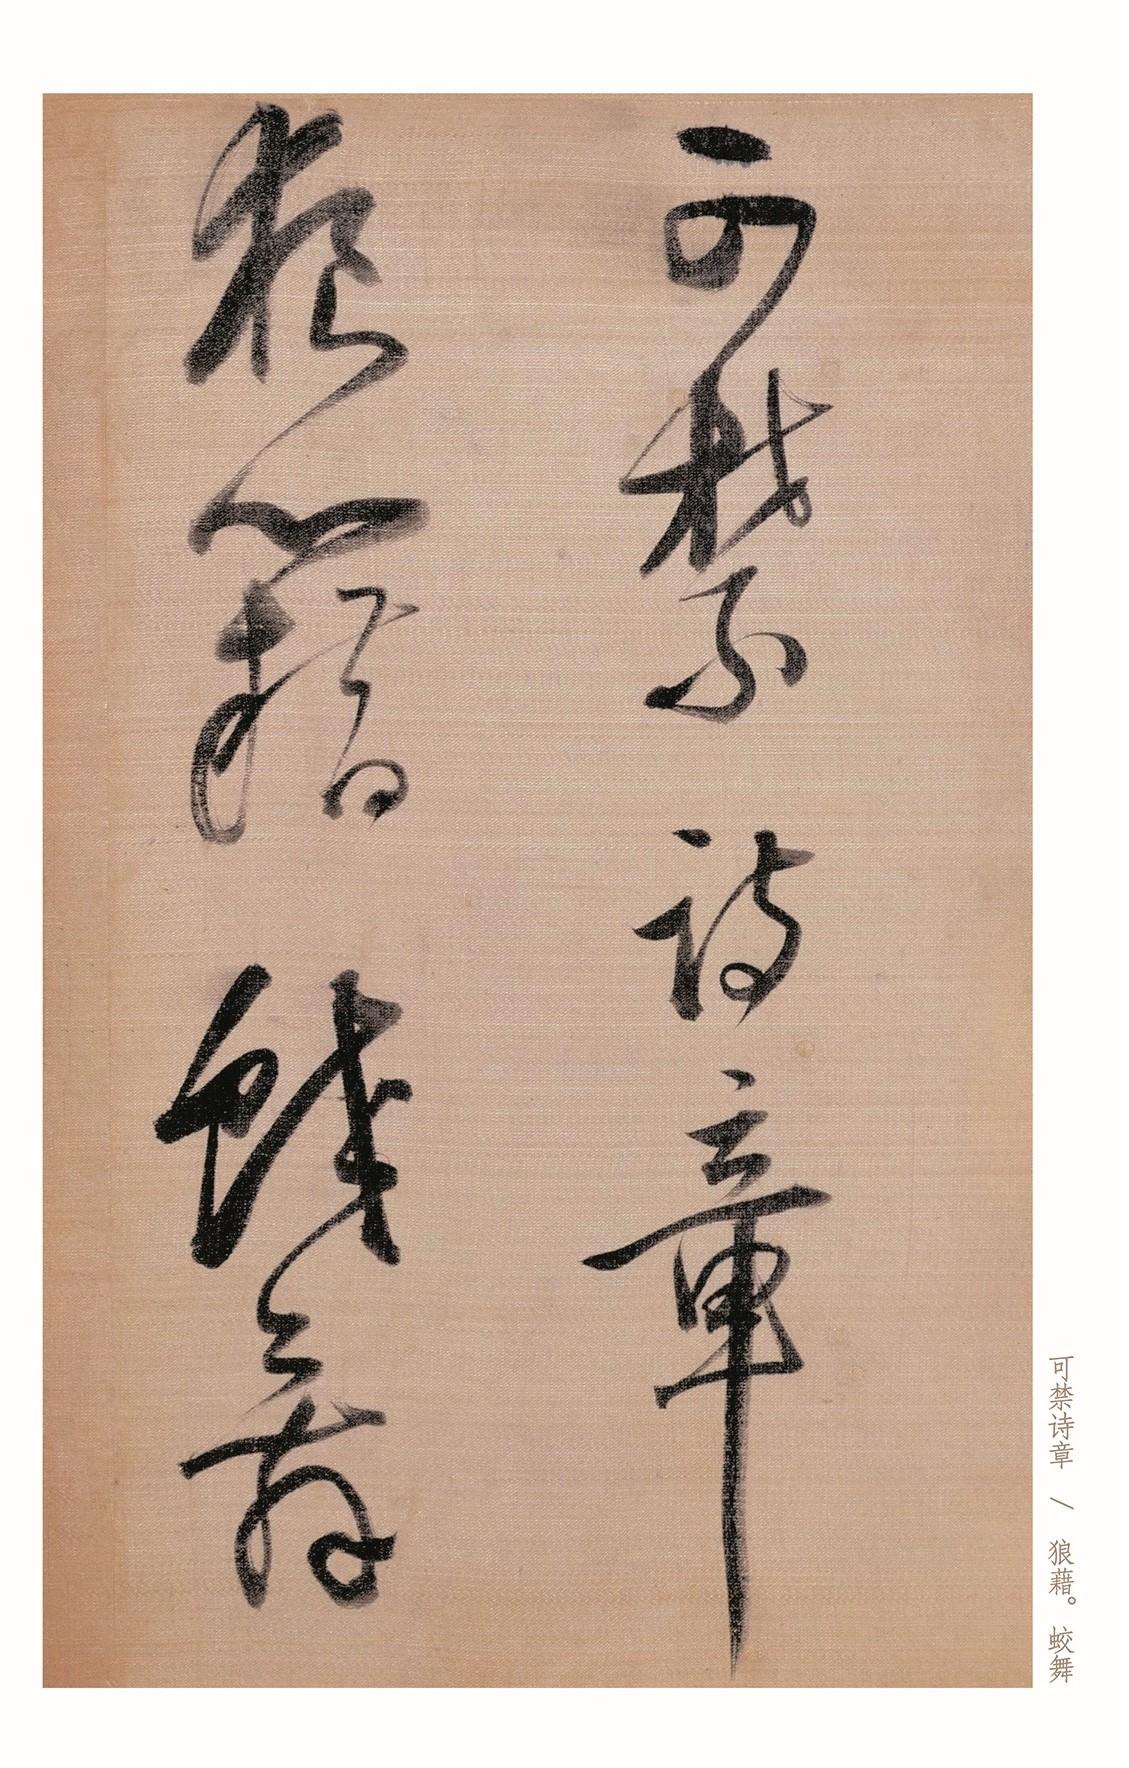 可禁诗章
狼藉蛟舞
可禁诗章 / 狼藉。蛟舞